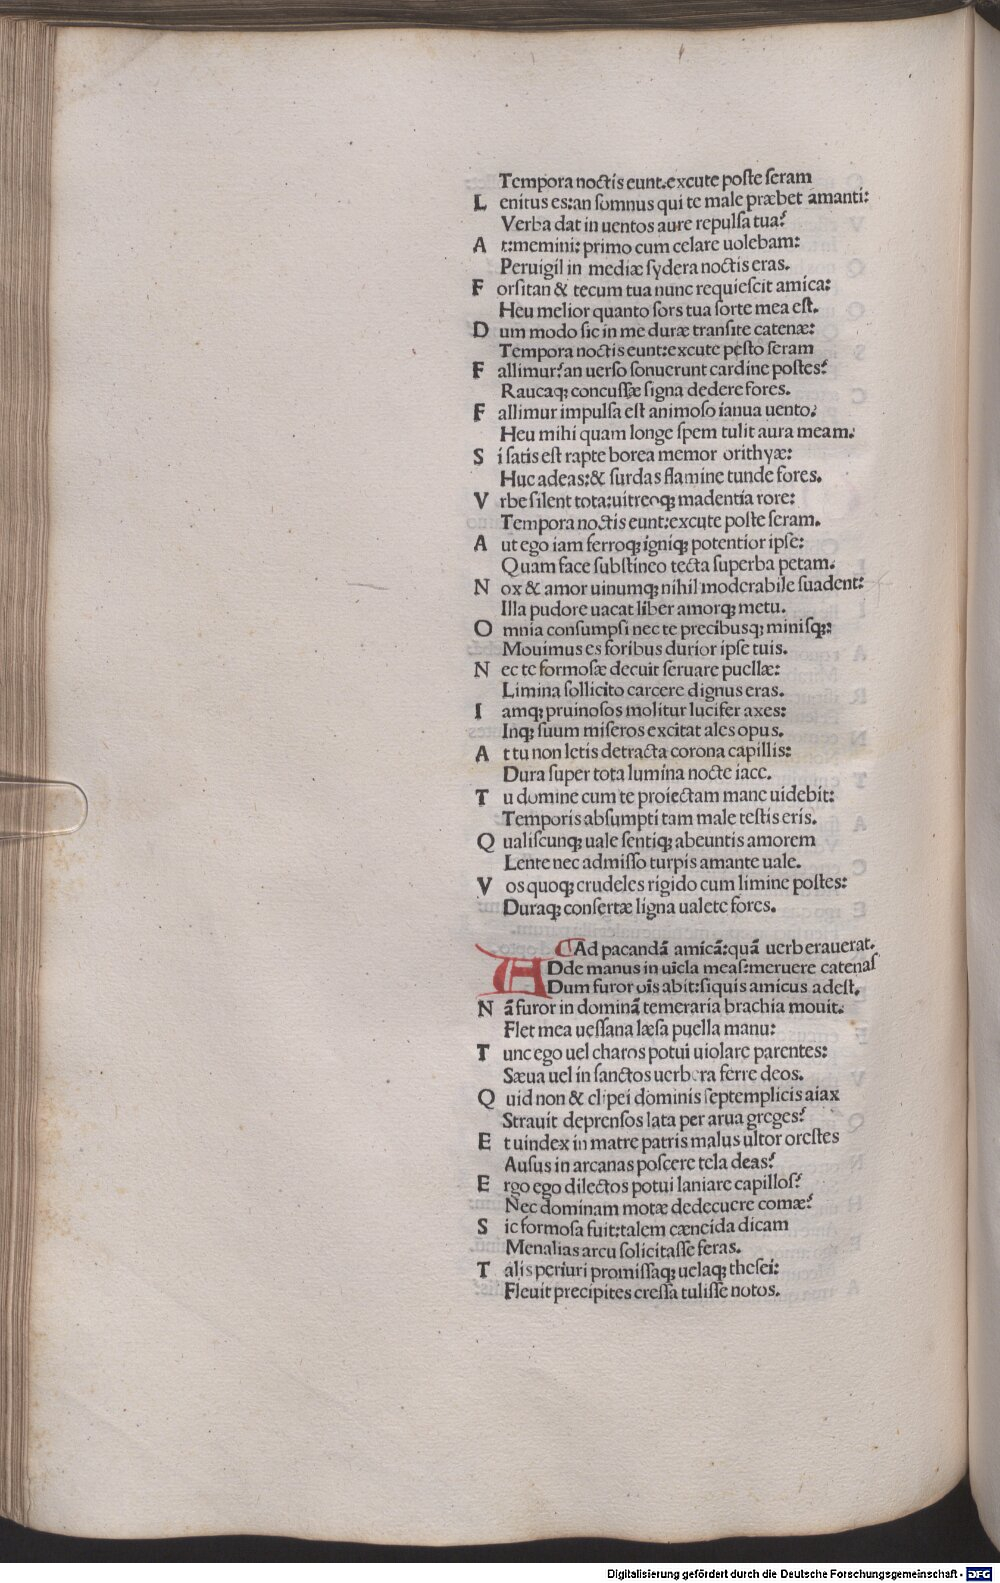 Tempora noctis eunt.excute poste seram
L enitus es:an somnus qui te male præbet amanti:
Verba dat in uentos aure repulsa tua?
A t:memini:primo cum celare uolebam:
Peruigil in mediæ sydera noctis eras.
F orsitan & tecum tua nunc requiescit amica:
Heu melior quanto sors tua sorte mea est.
D um modo sic in me duræ transite catenæ:
Tempora noctis eunt:excute posto seram
F allimur?an uerso sonuerunt cardine postes?
Raucaqꝫ concussæ signa dedere fores.
F allimur impulsa est animoso ianua uento?
Heu mihi quam longe spem tulit aura meam.
S i satis est rapte borea memor orithyæ:
Huc adeas:& surdas flamine tunde fores.
V rbe silent tota:uitreoqꝫ madentia rore:
Tempora noctis eunt:excute poste seram.
A ut ego iam ferroqꝫ igniqꝫ potentior ipse:
Quam face substineo tecta superba petam.
N ox & amor uinumqꝫ nihil moderabile suadent:
Illa pudore uacat liber amorqꝫ metu.
O mnia consumpsi nec te precibusqꝫ minisqꝫ:
Mouimus es foribus durior ipse tuis.
N ec te formosæ decuit seruare puellæ:
Limina sollicito carcere dignus eras.
I amqꝫ pruinosos molitur lucifer axes:
Inqꝫ suum miseros excitat ales opus.
A t tu non letis detracta corona capillis:
Dura super tota lumina nocte iace.
T u domine cum te proiectam mane uidebit:
Temporis absumpti tam male testis eris.
Q ualiscunqꝫ uale sentiqꝫ abeuntis amorem
Lente nec admisso turpis amante uale.
V os quoqꝫ crudeles rigido cum limine postes:
Duraqꝫ consertæ ligna ualete fores.
Ad pacandā amicā:quā uerberauerat.
A Dde manus in uicla meas:meruere catenas
Dum furor oı̄s abit:siquis amicus adest.
N ā furor in dominā temeraria brachia mouit.
Flet mea uessana læsa puella manu:
T unc ego uel charos potui uiolare parentes:
Sæua uel in sanctos uerbera ferre deos.
Q uid non & clipei dominis septemplicis aiax
Strauit deprensos lata per arua greges?
E t uindex in matre patris malus ultor orestes
Ausus in arcanas poscere tela deas?
E rgo ego dilectos potui laniare capillos?
Nec dominam motæ dedecuere comæ?
S ic formosa fuit:talem cæneida dicam
Menalias arcu solicitasse feras.
T alis periuri promissaqꝫ uelaqꝫ thesei:
Fleuit precipites cressa tulisse notos.
Digitalisierung gefördert durch die Deutsche Forschungsgemeinschaft - DFG